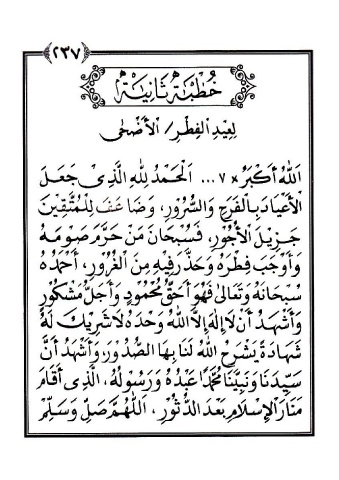 ٢٣٧
خُطْبَةٌ ثَانِيَةٌ
لِعِيدِ الفِطْرِ/ الأَضْحَى
اَللهُ أَكْبَرُ ×٧... اَلْحَمْدُ لِلّٰهِ الَّذِى جَعَلَ
الأَعْيَادَ بِالْفَرَحِ وَالسُّرُورِ، وَضَاعَفَ لِلْمُتَّقِينَ
جَزِيْلَ الأُجُورِ، فَسُبْحَانَ مَنْ حَرَّمَ صَوْمَهُ
وَأَوْجَبَ فِطْرَهُ وَحَذَّرَ فِيهِ مِنَ الْغُرُورِ، أَحْمَدُهُ
سُبْحَانَهُ وَتَعَالَى فَهُوَ أَحَقُّ مَحْمُودٍ وَأَجَلُّ مَشْكُورٍ
وَأَشْهَدُ أَنْ لَا إِلٰهَ إِلَّا اللهُ وَحْدَهُ لَا شَرِيْكَ لَهُ
شَهَادَةً يَشْرَحُ اللهُ لَنَا بِهَا الصُّدُورَ، وَأَشْهَدُ أَنَّ
سَيِّدَنَا وَنَبِيَّنَا مُحَمَّدًا عَبْدُهُ وَرَسُولُهُ، الَّذِى أَقَامَ
مَنَارَ الإِسْلَامِ بَعْدَ الدُّثُورِ، اَللّٰهُمَّ صَلِّ وَسَلِّمْ